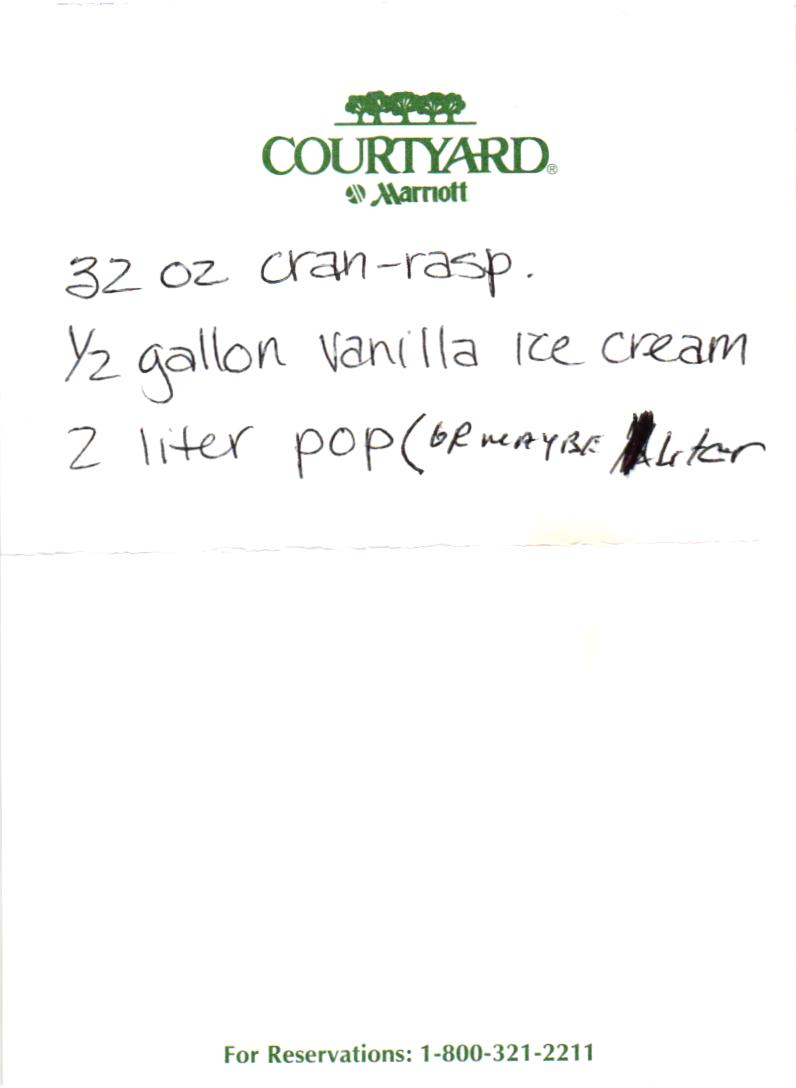 COURTYARD®
Marriott
32 oz cran-rasp.
1/2 gallon vanilla ice cream
2 liter pop (OR MAYBE liter
For Reservations: 1-800-321-2211